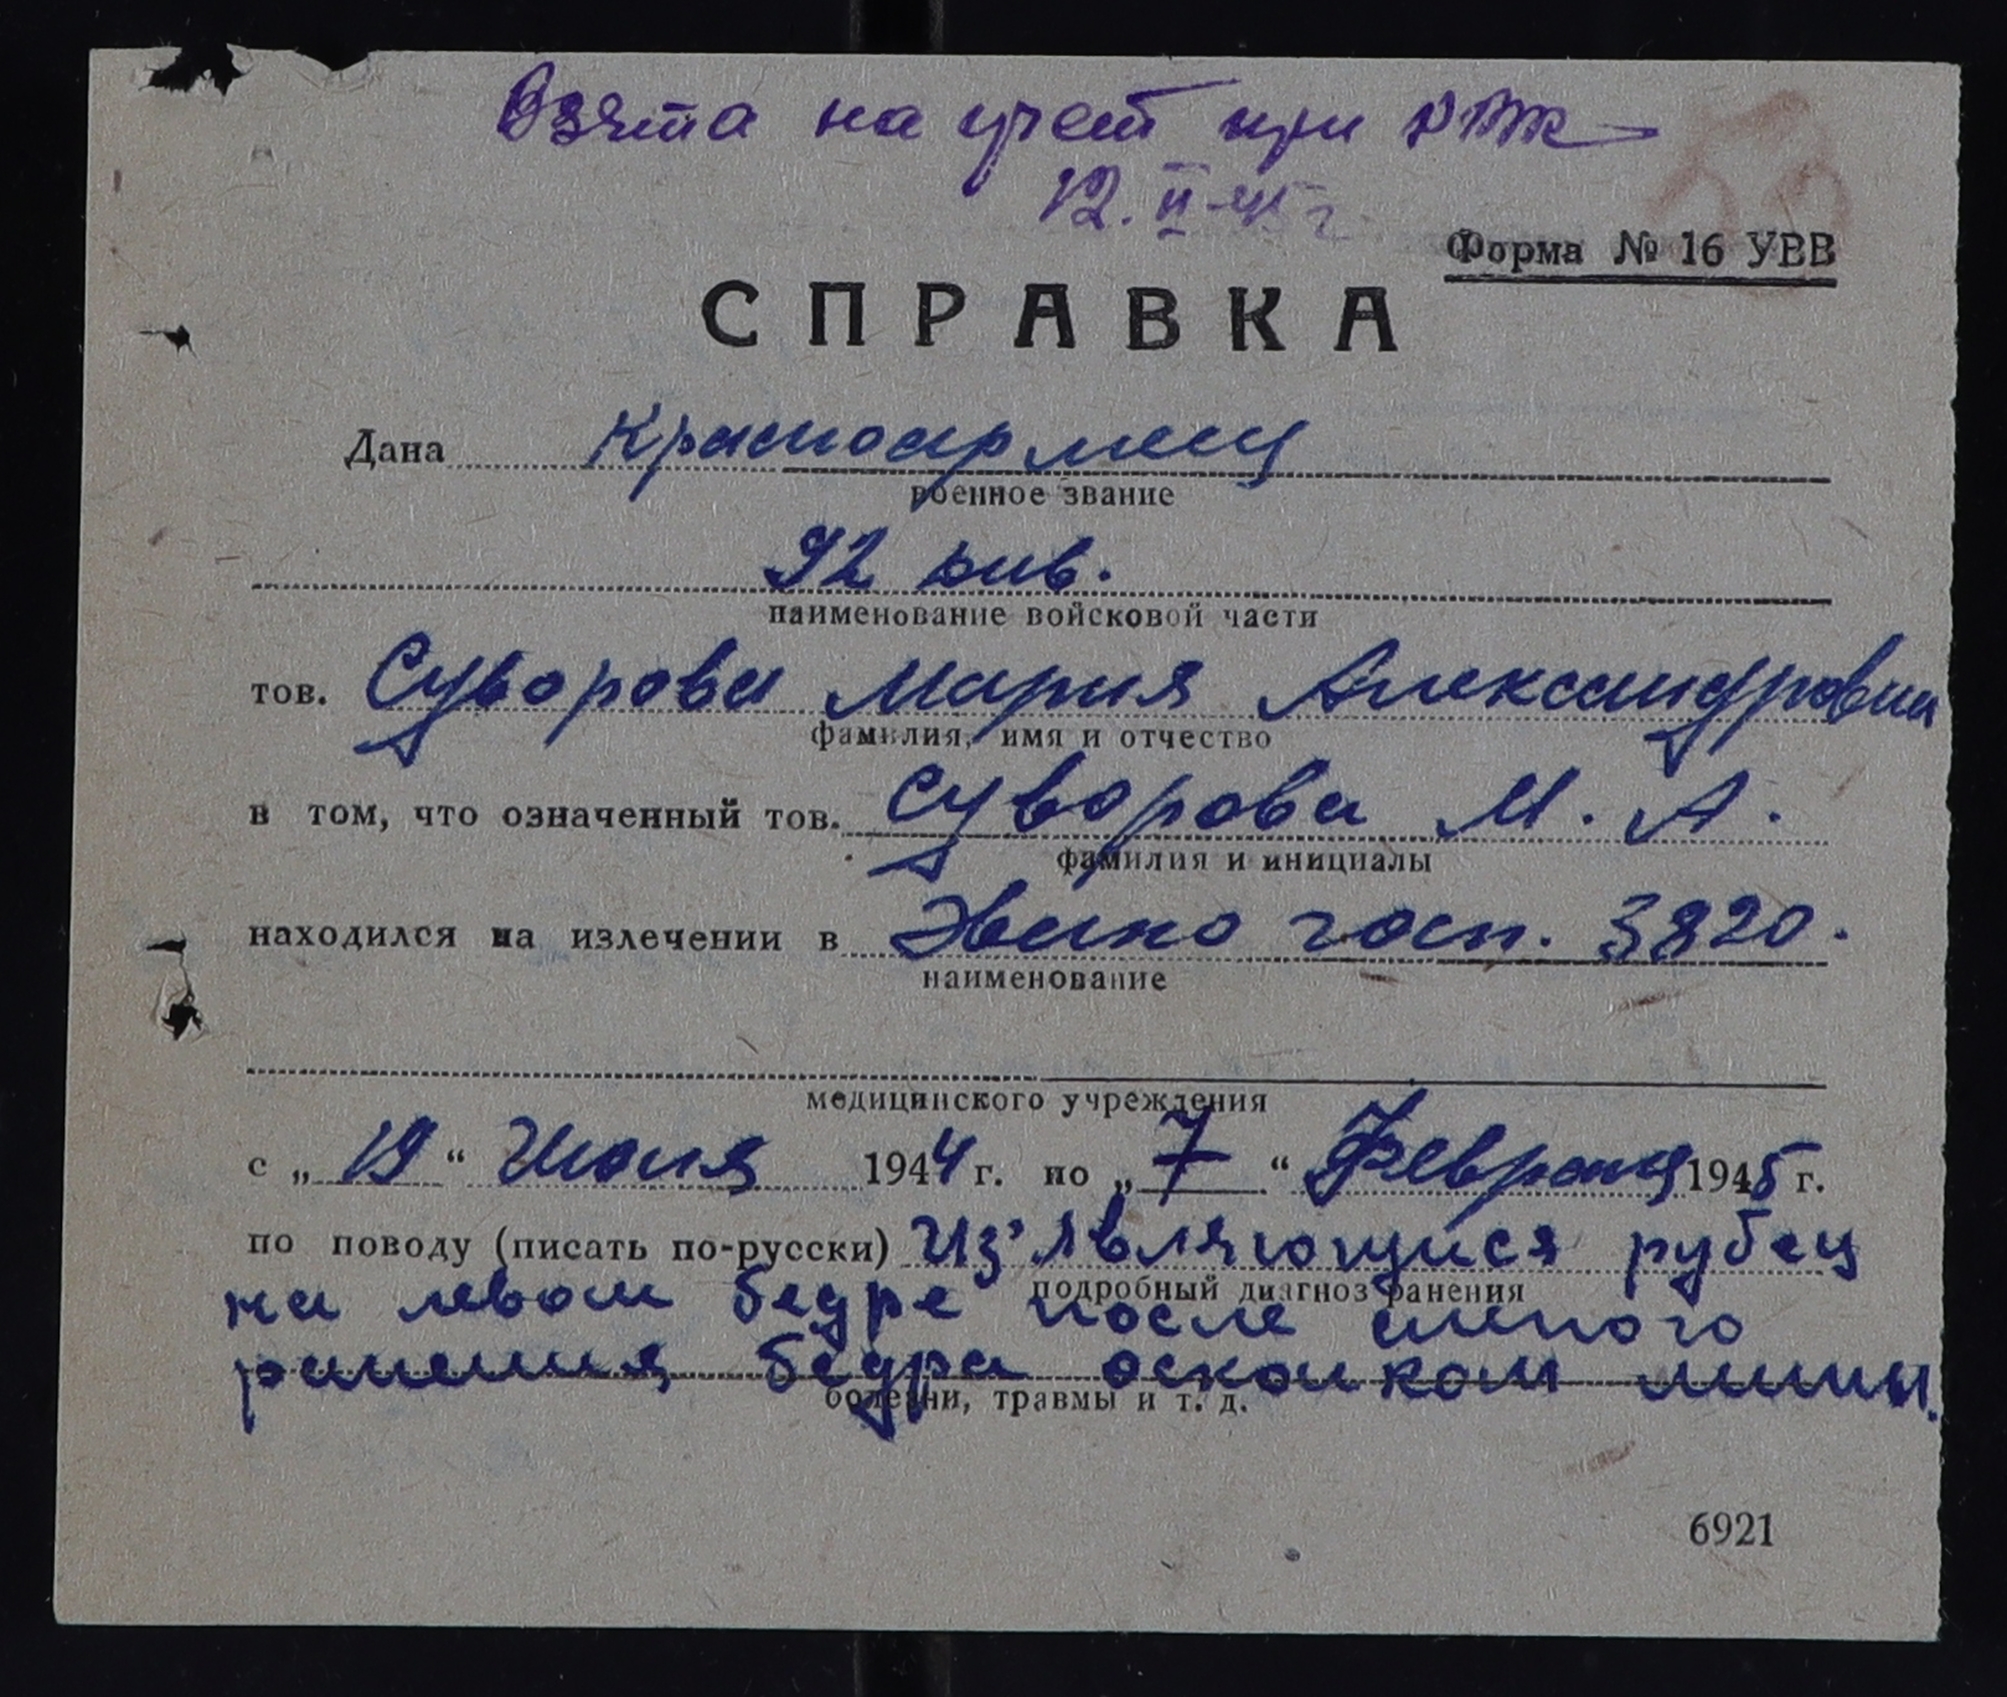 Взята на учет при РВК
12. II-45 г.
Форма № 16 УВВ
СПРАВКА
Дана Красноармеец
военное звание
92 див.
наименование войсковой части
тов. Суворова Мария Александровна
фамилия, имя и отчество
в том, что означенный тов. Суворова М. А.
фамилия и инициалы
находился на излечении в Эвако госп. 3820.
наименование
медицинского учреждения
с „19“ Июля 1944 г. по „7“ Февраля 1945 г.
по поводу (писать по-русски) Из'являющийся рубец
подробный диагноз ранения
на левом бедре после слепого
ранения бедра осколком мины.
болезни, травмы и т. д.
6921